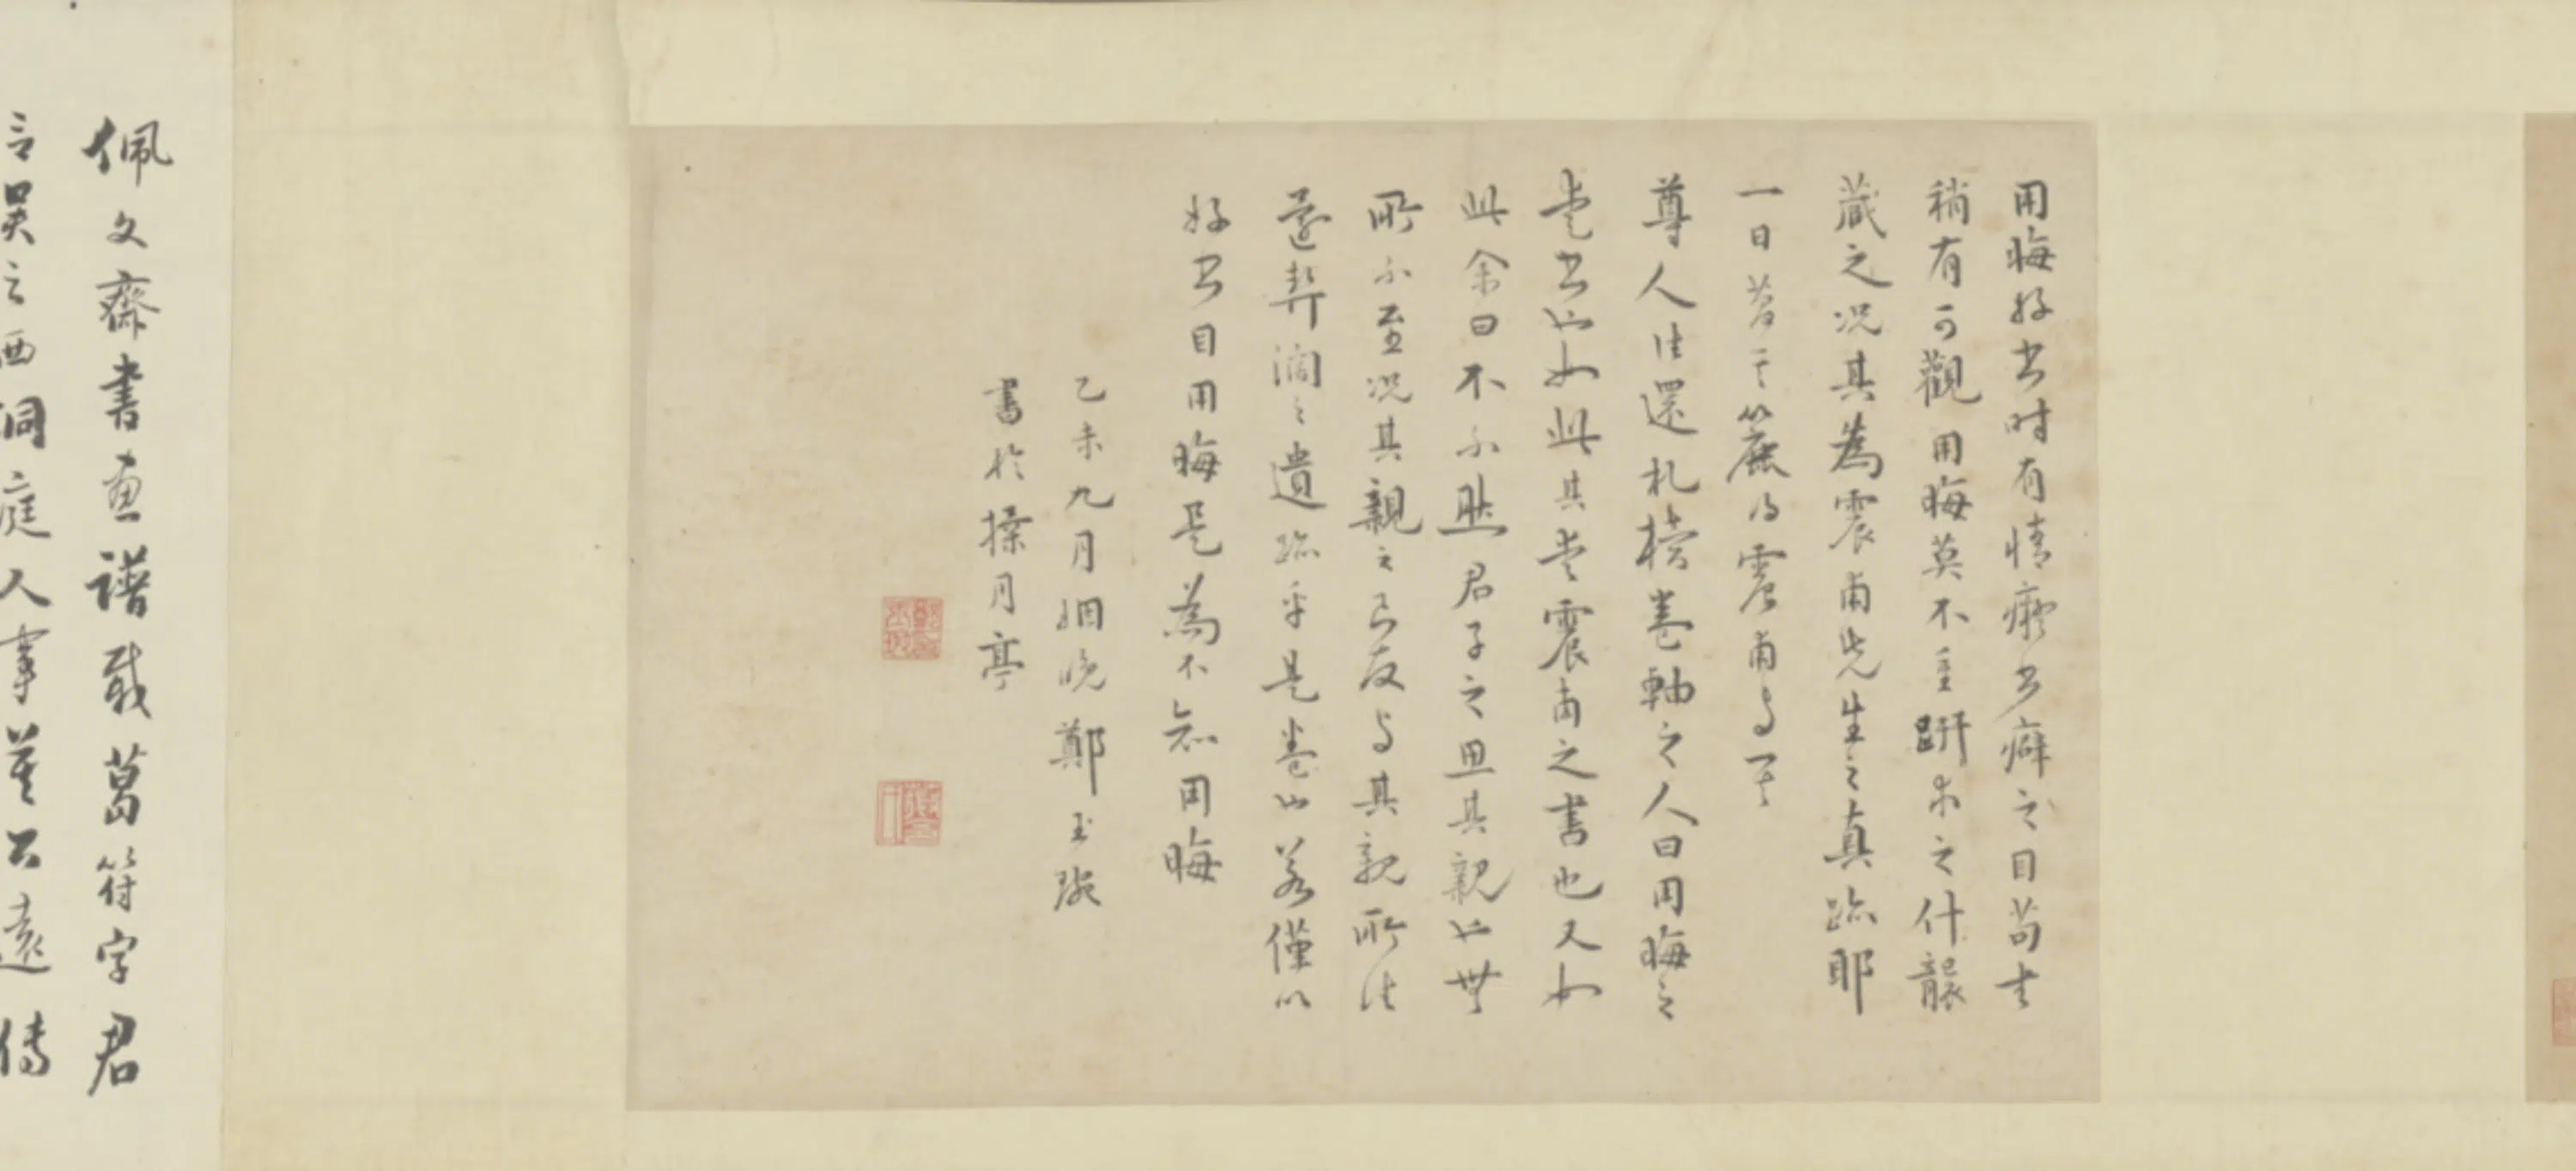 用晦好書時有情癡書癖之目苟書
稍有可觀用晦莫不重趼求之什襲
藏之況其為震甫先生之真跡耶
一日簏得震甫與
尊人往還札榜卷軸之人曰用晦之
書也如此其震甫之書也又如
此余曰不不然君子之思其親也無
所不至況其親之已友與其親所往
還契闊之遺跡乎是卷也若僅以
好書目用晦是為不知用晦
乙未九月姻晚鄭玉
書於操月亭
佩文齋書畫譜載葛符字君
言吳之西洞庭人掌公遠傳